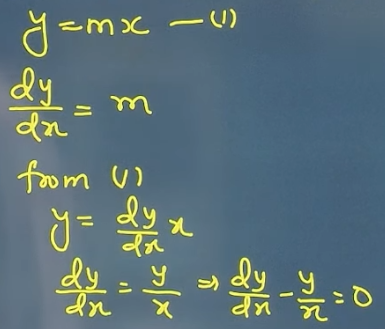 y = mx — (1)
dy/dx = m
from (1)
y = dy/dx x
dy/dx = y/x ⇒ dy/dx - y/x = 0